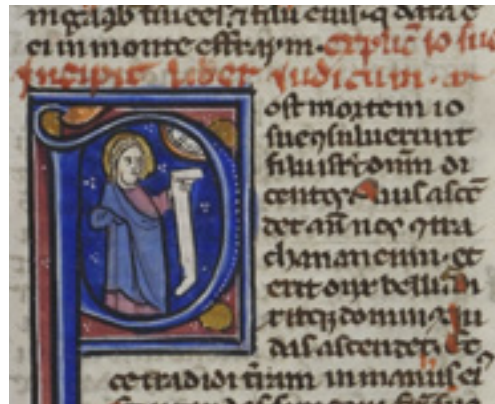 finees filii eius q data e
ei in monte effraym. explic io sue
Incipit liber iudicum.
Post mortem io
sue ɔsuluerunt
filii isrl dnm di
centes quis ascē
det añ nos ɔtra
chananeum. et
erit dux belli
dominus iu
das ascendet. Ec
ce tradidi trām in manus ei